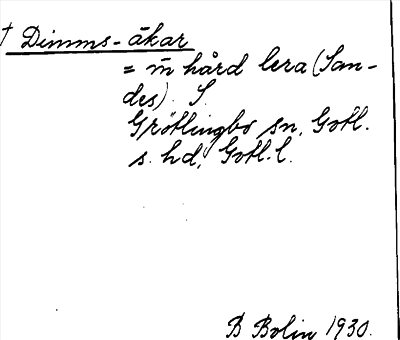 † Dimms-åkar
= m̄ hård lera (San-
des). S.
Grötlingbo sn, Gotl.
s. hd, Gotl. l.
B Bolin 1930.